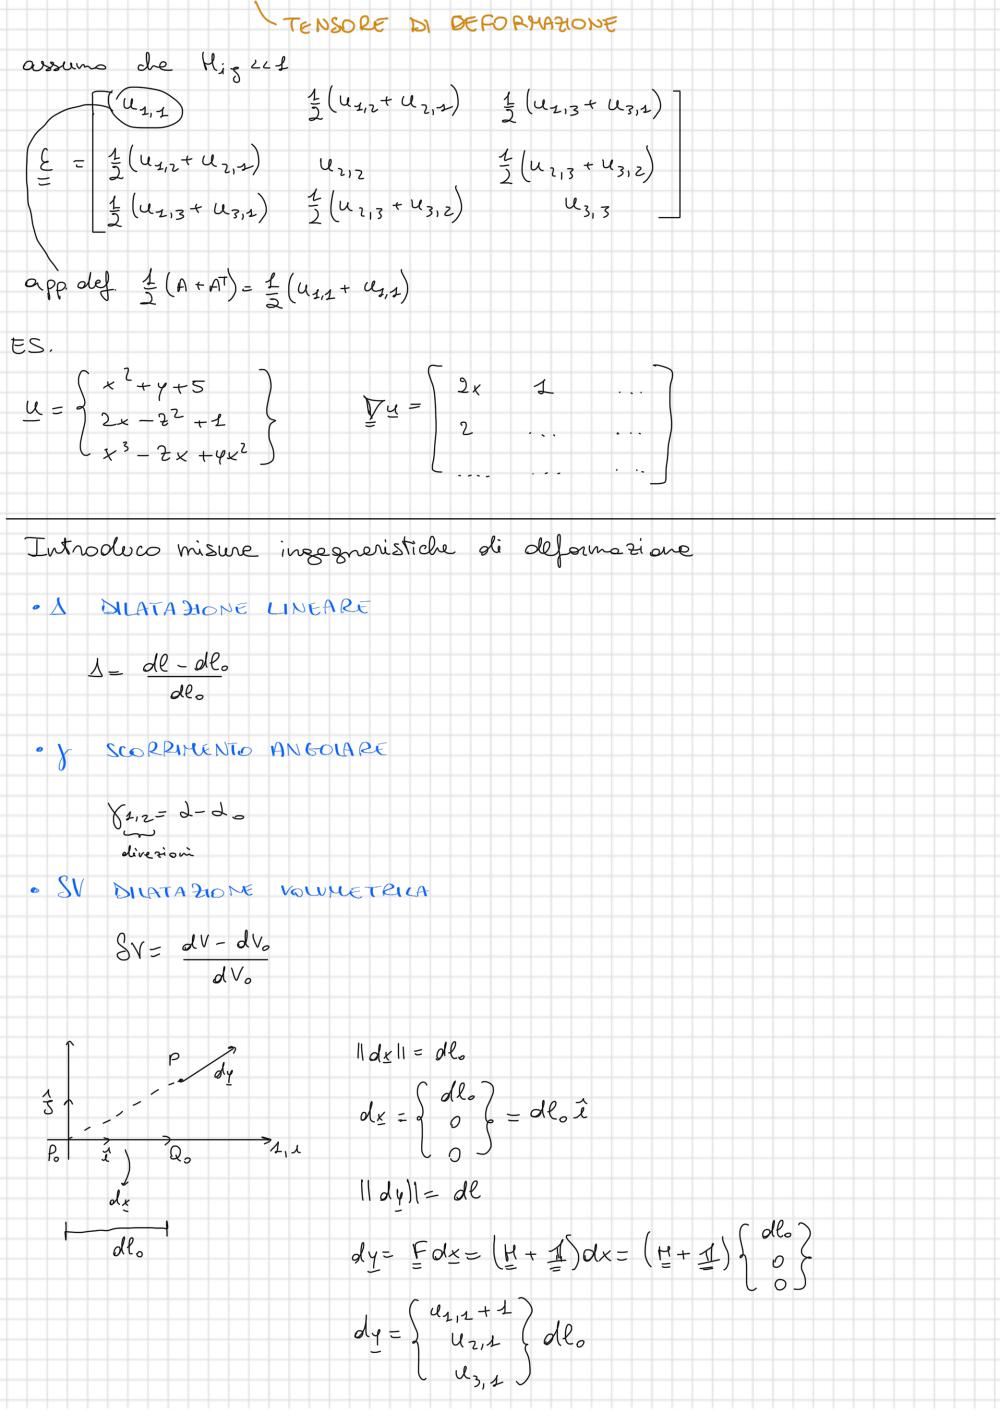 TENSORE DI DEFORMAZIONE
assumo che Hij <<1
ε = [ u1,1   1/2 (u1,2 + u2,1)   1/2 (u1,3 + u3,1)
1/2 (u1,2 + u2,1)   u2,2   1/2 (u2,3 + u3,2)
1/2 (u1,3 + u3,1)   1/2 (u2,3 + u3,2)   u3,3 ]
app. def. 1/2 (A + A^T) = 1/2 (u1,1 + u1,1)
ES.
u = { x² + y + 5
2x - z² + 1
x³ - zx + yx² }
∇u = [ 2x   1   ...
2   ...   ...
....   ...   ... ]
Introduco misure ingegneristiche di deformazione
• Δ DILATAZIONE LINEARE
Δ = (dl - dl₀) / dl₀
• γ SCORRIMENTO ANGOLARE
γ1,2 = α - α₀
direzioni
• δV DILATAZIONE VOLUMETRICA
δV = (dV - dV₀) / dV₀
P
dy
ĵ
P₀ î Q₀ 1,i
dx
dl₀
||dx|| = dl₀
dx = { dl₀ 0 0 } = dl₀ î
||dy|| = dl
dy = F dx = (H + 1)dx = (H + 1) { dl₀ 0 0 }
dy = { u1,1 + 1
u2,1
u3,1 } dl₀